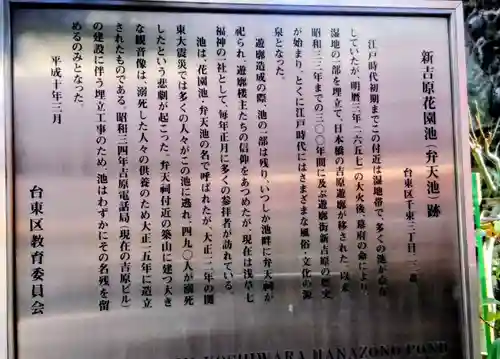 新吉原花園池(弁天池)跡
台東区千束三丁目二二番
江戸時代初期までこの付近は湿地帯で、多くの池が点在
していたが、明暦三年(一六五七)の大火後、幕府の命により、
湿地の一部を埋立て、日本橋の吉原遊廓が移された。以来
昭和三三年までの三〇〇年間に及ぶ遊廓街新吉原の歴史
が始まり、とくに江戸時代にはさまざまな風俗・文化の源
泉となった。
遊廓造成の際、池の一部は残り、いつしか池畔に弁天祠が
祀られ、遊廓楼主たちの信仰をあつめたが、現在は浅草七
福神の一社として、毎年正月に多くの参拝者が訪れている。
池は、花園池・弁天池の名で呼ばれたが、大正一二年の関
東大震災では多くの人々がこの池に逃れ、四九〇人が溺死
したという悲劇が起こった。弁天祠付近の築山に建つ大き
な観音像は、溺死した人々の供養のため大正一五年に造立
されたものである。昭和三四年吉原電話局(現在の吉原ビル)
の建設に伴う埋立工事のため、池はわずかにその名残を留
めるのみとなった。
平成十年三月
台東区教育委員会
YOSHIWARA HANAZONO POND